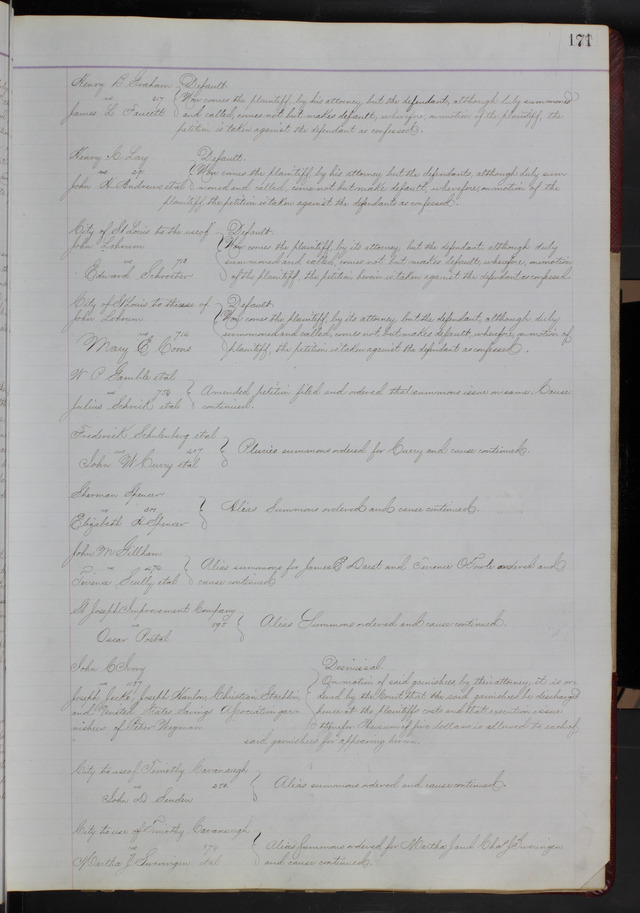 171
Henry B. Graham } Default.
vs 217 Now comes the plaintiff, by his attorney, but the defendant, although duly summoned
James L. Faucett and called, comes not but makes default, wherefore, on motion of the plaintiff, the
petition is taken against the defendant as confessed.
Henry C. Lay } Default.
vs Now comes the plaintiff by his attorney but the defendants, although duly sum
John K. Andrews et al moned and called, come not but make default, wherefore, on motion of the
plaintiff, the petition is taken against the defendants as confessed.
City of St Louis to the use of } Default.
John Lohrum Now comes the plaintiff, by its attorney, but the defendant although duly
vs summoned and called, comes not but makes default, wherefore, on motion
Edward Schroeter of the plaintiff, the petition herein is taken against the defendant as confessed
City of St Louis to the use of } Default.
John Lohrum Now comes the plaintiff, by its attorney, but the defendant, although duly
vs summoned and called, comes not but makes default, wherefore, on motion of
Mary E. Coons plaintiff, the petition is taken against the defendant as confessed.
W P Gamble et al
vs } Amended petition filed and ordered that summons issue on same. Cause
Julius et al continued.
Frederick Schulenburg et al
vs } Pluries summons ordered for Curry and cause continued.
John W Curry et al
Sherman Spencer
vs } Alias Summons ordered and cause continued.
Elizabeth A Spencer
John M Gillham
vs } Alias summons for James P Darst and Terence O'Toole ordered and
Terence Scully et al cause continued
St Joseph Improvement Company
vs } Alias Summons ordered and cause continued.
Oscar Postal
John C Ivory } Dismissal.
vs On motion of said garnishees, by their attorney, it is or
Joseph Joseph Hanlon, Christian Staehlin dered by the Court that the said garnishees be discharged
and United States Savings Association gar hence at the plaintiffs costs and that execution issue
nishees of Peter Wegman therefor. The sum of five dollars is allowed to each of
said garnishees for appearing herein.
City to use of Timothy Cavanaugh
vs } Alias summons ordered and cause continued.
John D.
City to use of Timothy Cavanaugh
vs } Alias Summons ordered for Martha J and Chas J Sweringen
Martha J Sweringen et al and cause continued.